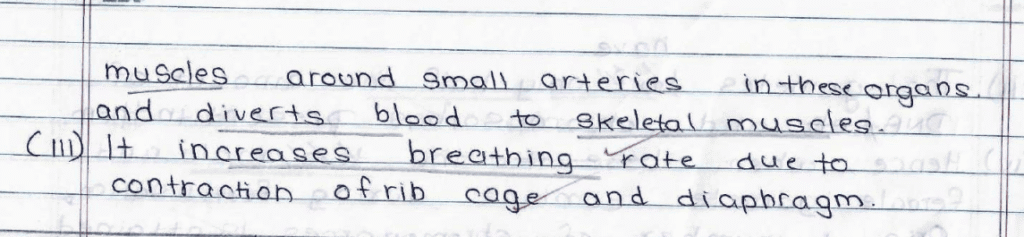 muscles around small arteries in these organs.
and diverts blood to skeletal muscles.
(III) It increases breathing rate due to
contraction of rib cage and diaphragm.